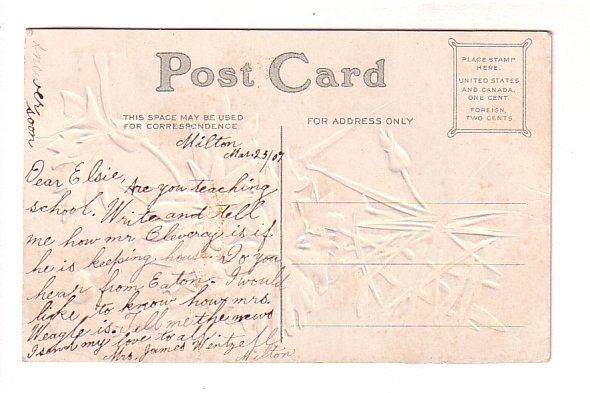 Answer
soon
Post Card
PLACE STAMP
HERE.
UNITED STATES
AND CANADA,
ONE CENT.
FOREIGN,
TWO CENTS.
THIS SPACE MAY BE USED
FOR CORRESPONDENCE
FOR ADDRESS ONLY
Milton
Mar. 23/07
Dear Elsie, Are you teaching
school. Write and tell
me how mr Cleveray is if
he is keeping house. Do you
hear from Eaton. I would
like to know how mrs.
Weagle is. Tell me the news
I send my love to all
Mrs. James Wentzell
Milton